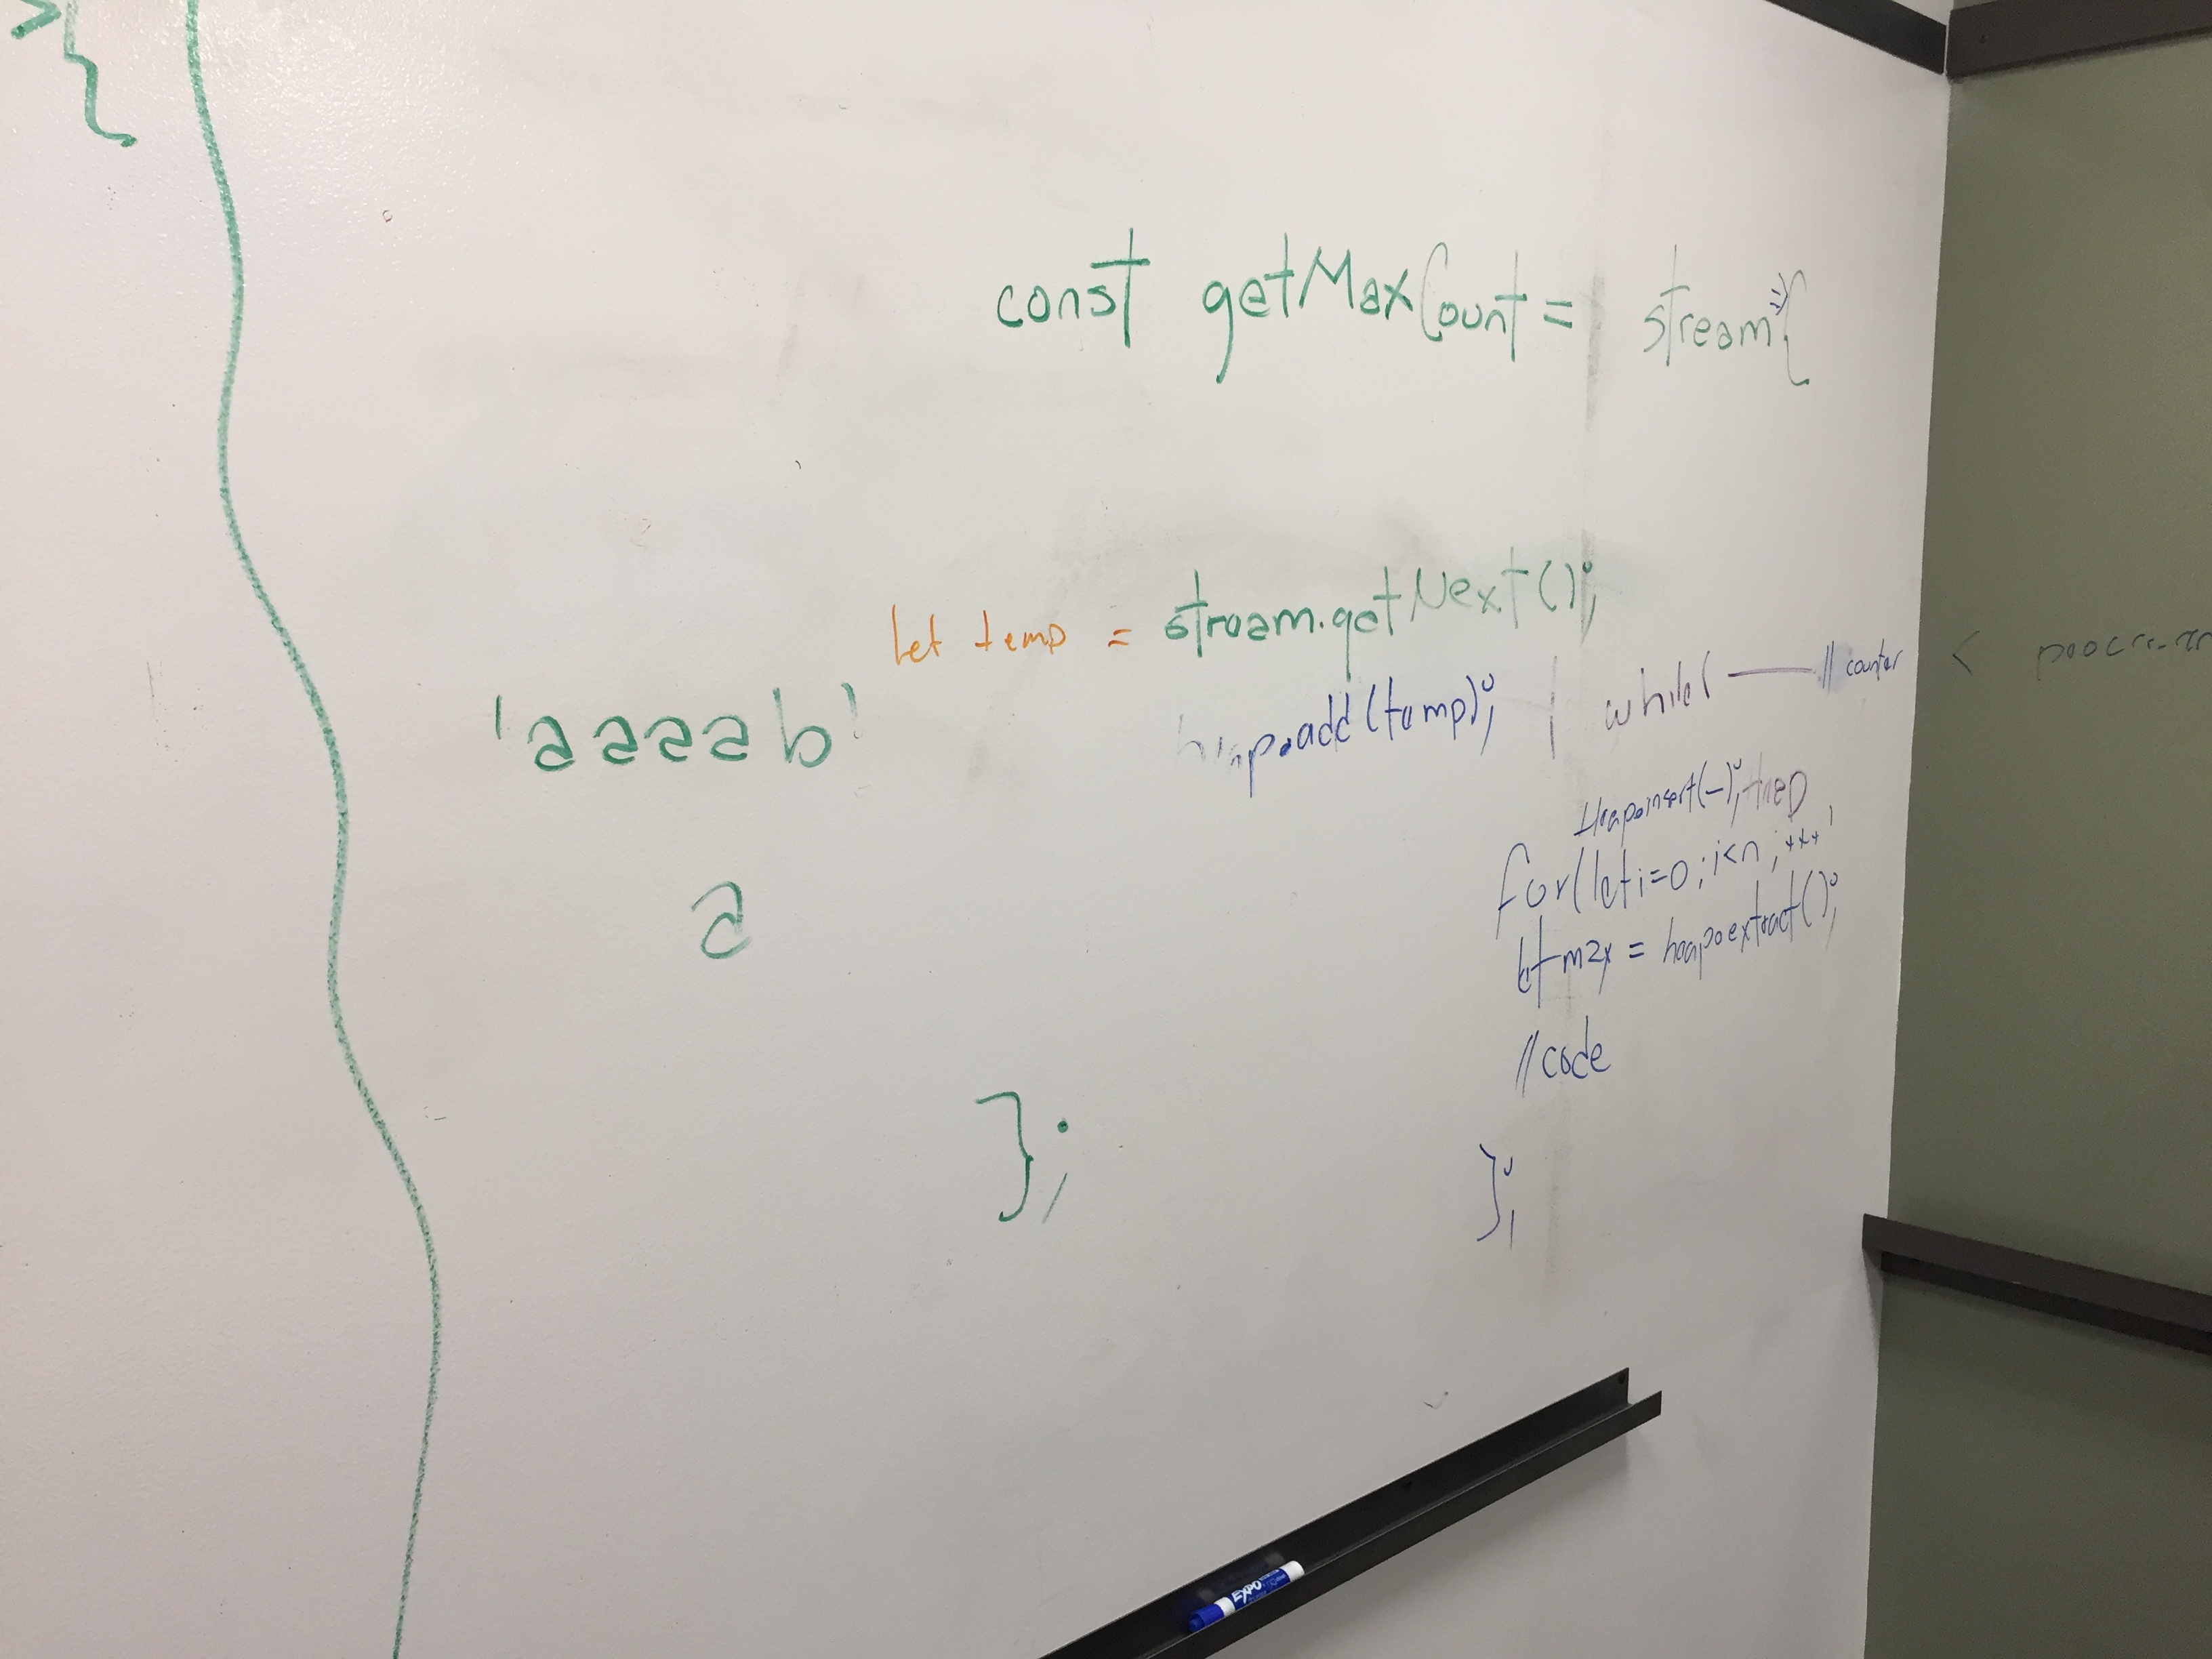 >{
const getMaxCount = stream => {
let temp = stream.getNext();
heap.add(temp); | while( — // counter <
'aaaab'
Heap.insert(-);
for(let i=0; i<n; +++
a
let max = heap.extract();
// code
};
};
EXPO